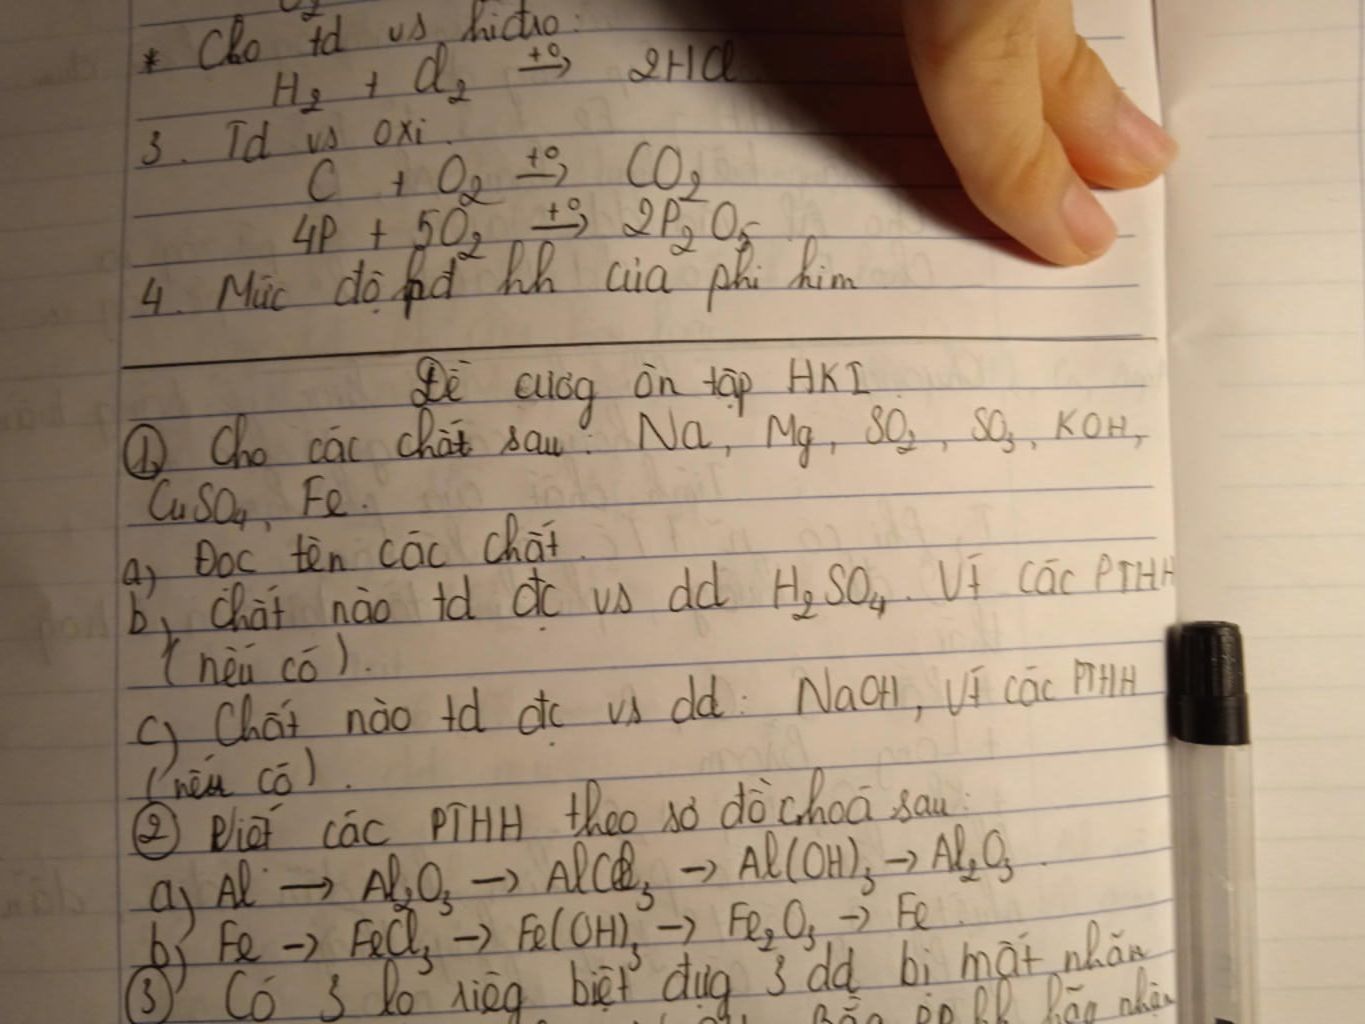 * Cho td vs hiđro:
H₂ + Cl₂ →(t⁰) 2HCl
3. Td vs oxi.
C + O₂ →(t⁰) CO₂
4P + 5O₂ →(t⁰) 2P₂O₅
4. Mức độ hđ hh của phi kim
Đề cươg ôn tập HKI
① Cho các chất sau: Na, Mg, SO₂, SO₃, KOH,
CuSO₄, Fe.
a) Đọc tên các chất.
b) Chất nào td đc vs dd H₂SO₄. Vt các PTHH
(nếu có).
c) Chất nào td đc vs dd: NaOH, Vt các PTHH
(nếu có).
② Viết các PTHH theo sơ đồ choá sau:
a) Al → Al₂O₃ → AlCl₃ → Al(OH)₃ → Al₂O₃.
b) Fe → FeCl₃ → Fe(OH)₃ → Fe₂O₃ → Fe.
③ Có 3 lọ riêg biệt đựg 3 dd bị mất nhãn
Bằg pp hh hãy nhận